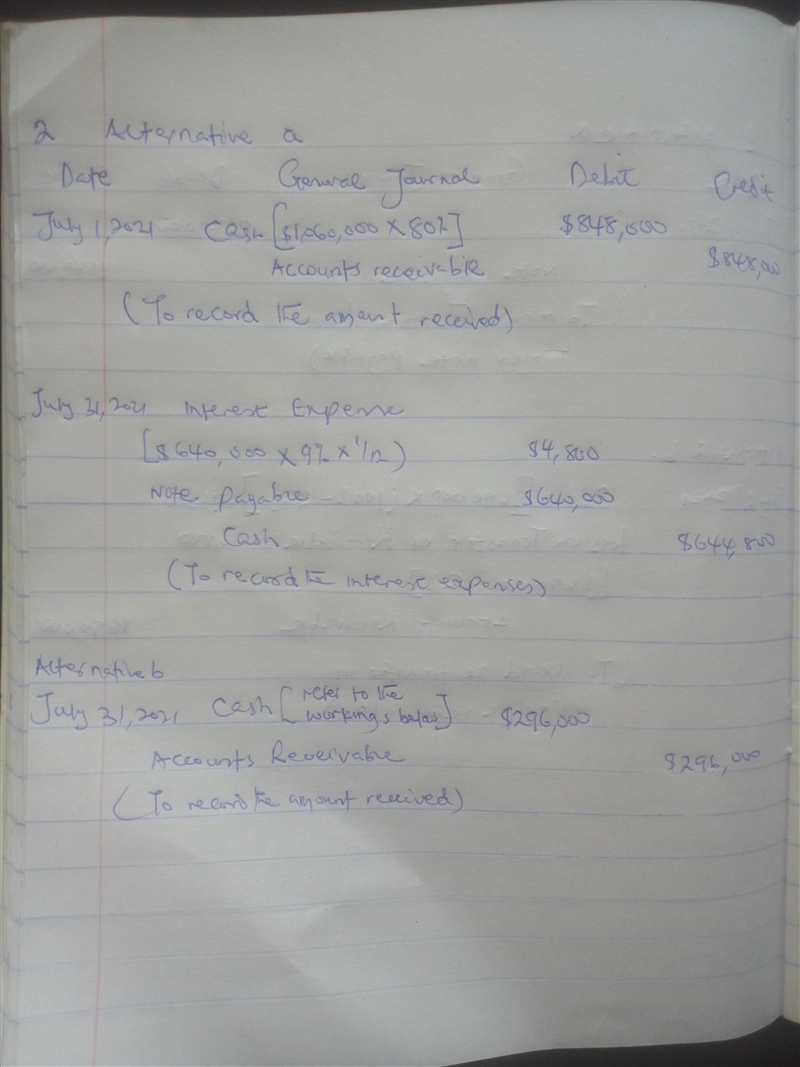 2 Alternative a
Date General Journal Debit Credit
July 1, 2021 Cash [$1,060,000 × 80%] $848,000
Accounts receivable $848,000
(To record the amount received)
July 31, 2021 Interest Expense
[$640,000 × 9% × 1/12) $4,800
Note payable $640,000
Cash $644,800
(To record the interest expenses)
Alternative b
July 31, 2021 Cash [refer to the workings below] $296,000
Accounts Receivable $296,000
(To record the amount received)